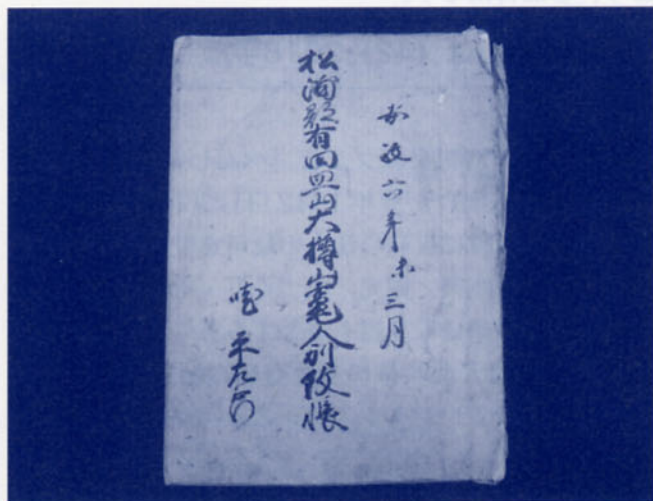 安政六年未三月
松浦郡有田皿山大樽山竈人別改帳
咾 平左衛門